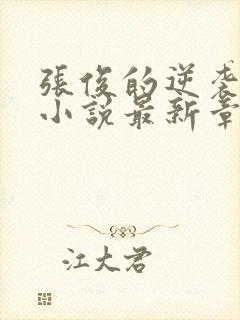 張俊的逆袭
小說最新章
江大君